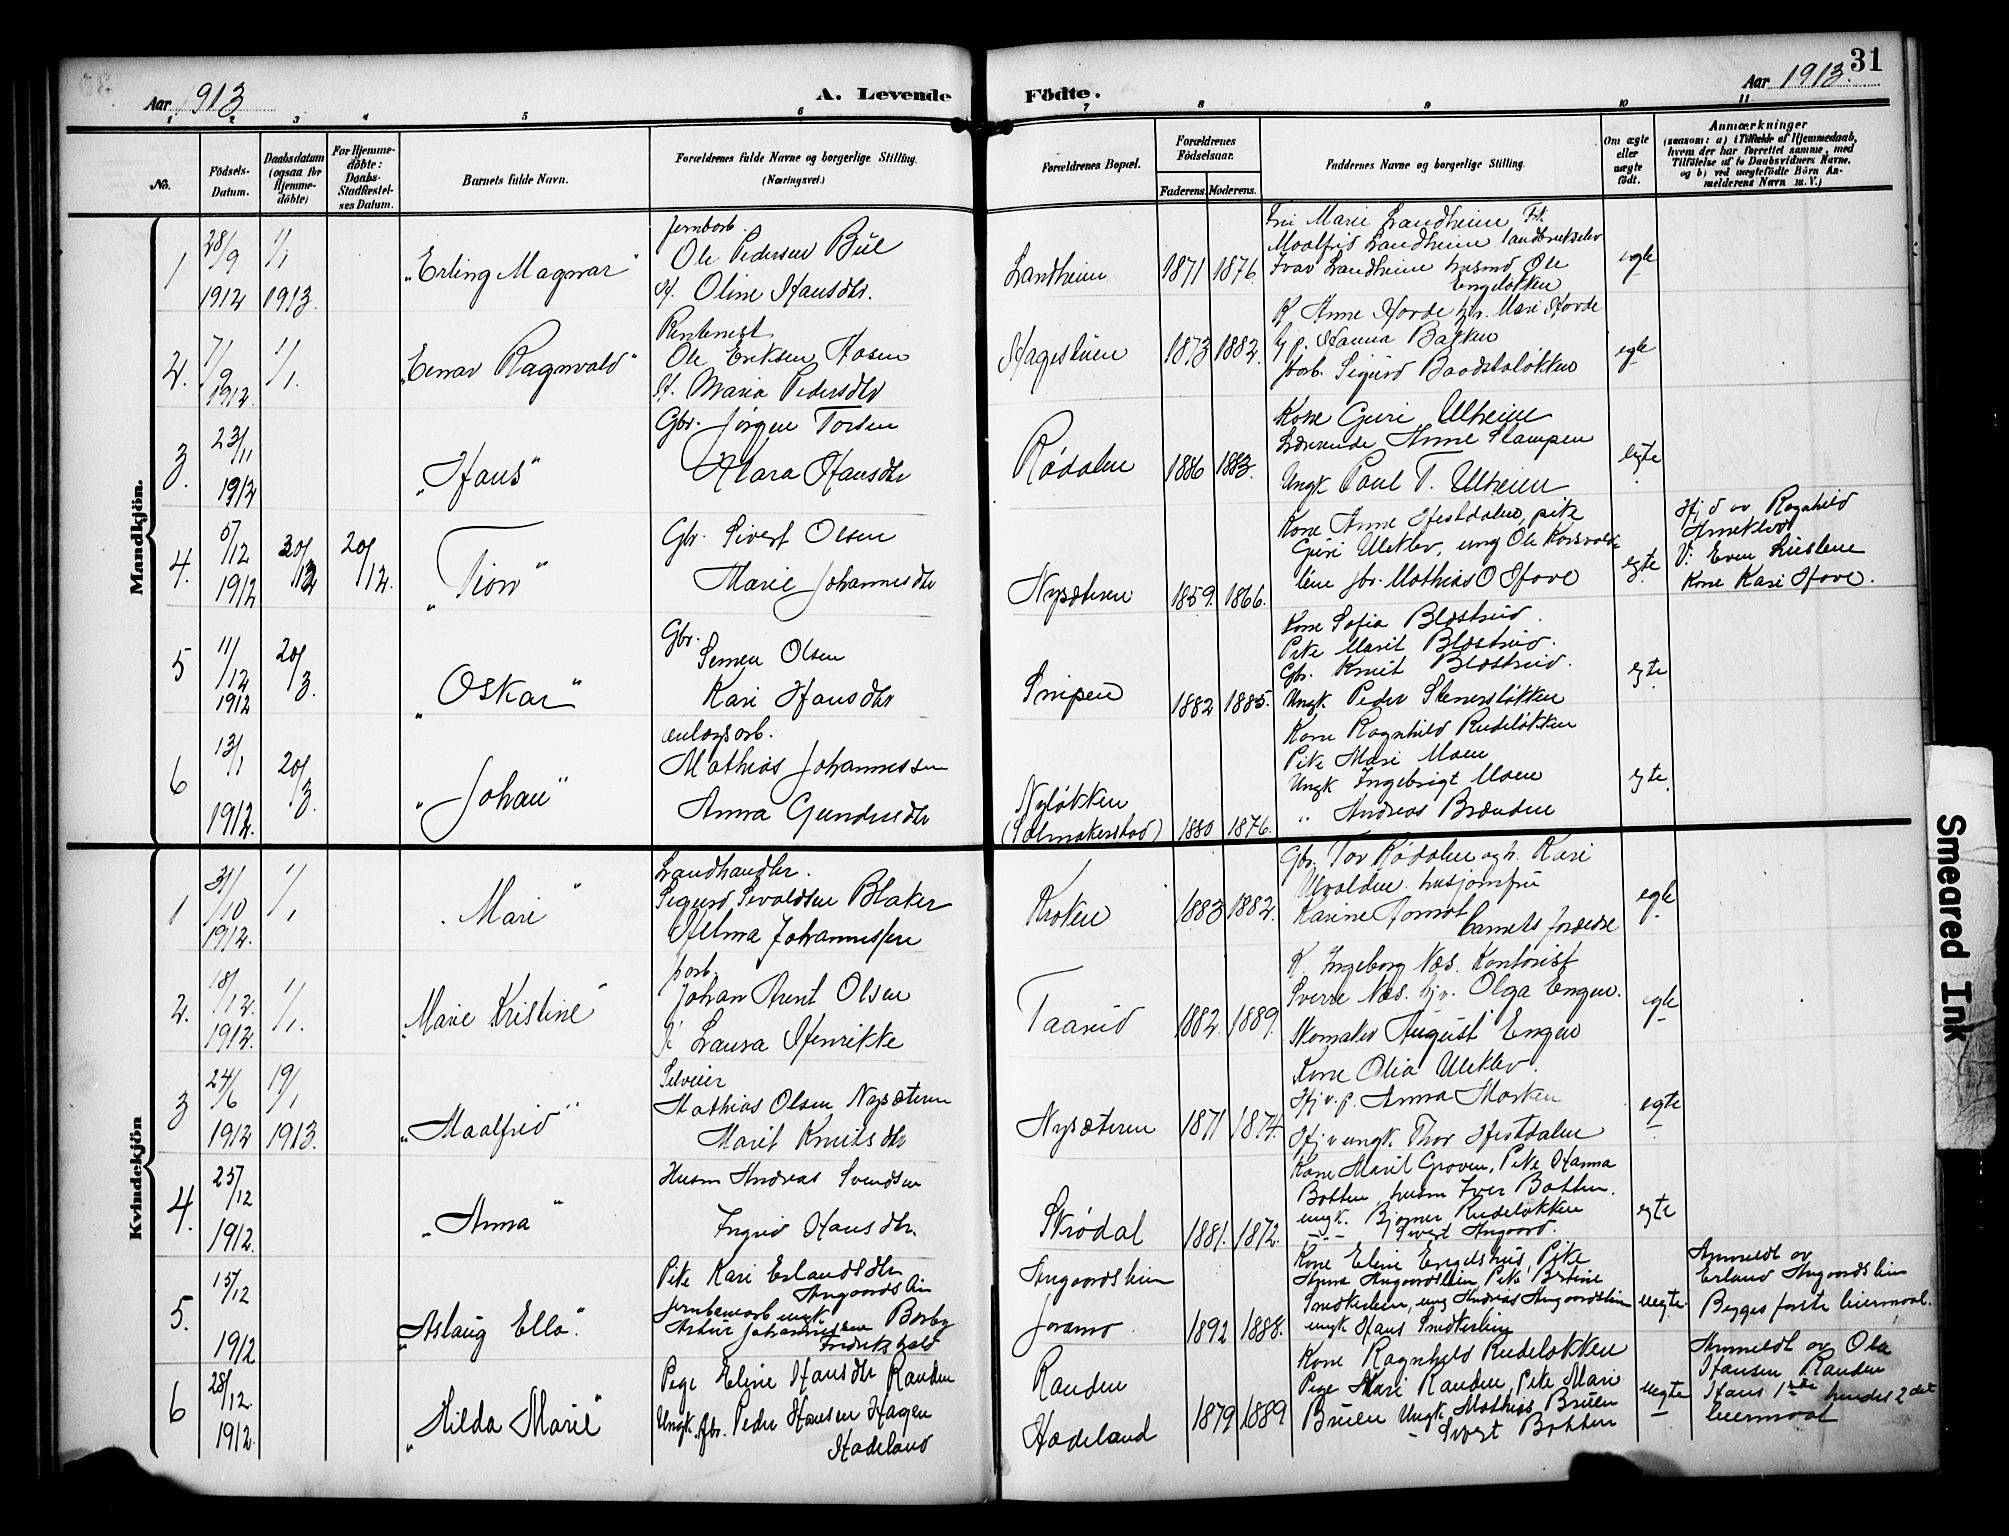 31
Aar 1913
A. Levende
Födte.
Aar 1913.
1 2 3 4 5 6 7 8 9 10 11
No.
Födsels-
Datum.
Daabsdatum
(ogsaa for
Hjemme-
döbte)
For Hjemme-
döbte:
Daabs-
Stadfæstel-
ses Datum.
Barnets fulde Navn.
Forældrenes fulde Navne og borgerlige Stilling.
(Næringsvei.)
Forældrenes Bopæl.
Forældrenes
Födselsaar.
Faderens. Moderens.
Faddernes Navne og borgerlige Stilling.
Om ægte
eller
uægte
födt.
Anmærkninger
(saasom: a) i Tilfælde af Hjemmedaab,
hvem der har forrettet samme, med
Tilföielse af to Daabsvidners Navne.
og b) ved uægtefödte Börn An-
melderens Navn m. V.)
Mandkjön.
1
28/9
1912
1/1
1913.
"Erling Magnar"
Jernbarb.
Ole Pedersen Bül
H. Oline Hansdtr.
Landheim
1871 1876.
Marie Landheim Frk.
Maalfrid Landheim
Ivar Landheim husmd Ole
Engeløkken
egte
2.
7/9
1912.
1/1.
"Einar Ragnvald"
Ole Eriksen Aasen
H. Maria Pedersdtr
Hageslien
1873 1882.
K Anne Horde Mari Horde
p. Hanna Bakken
Sigurd Baadstøløkken
egte
3.
23/11
1912
"Hans"
Gbr. Jørgen Torsen
Klara Hansdtr
Rødalen
1886 1883.
Kone Guri Ulheim
Lærerinde Anne Klampen
Ungk Paul T. Ulheim
egte
4.
5/12
1912
20/12
20/12.
"Tion"
Gbr. Sivert Olsen
Marie Johannesdtr
Nysæteren
1859. 1866.
Kone Anne Hestdalen, pike
Guri Uleklev, ung Ole Korsvold-
lien gbr. Mathias O Hove
egte
Hj d av Ragnhild
V. Even Lieslien
Kone Kari Hove.
5
11/12
1912
20/3.
"Oskar"
Gbr.
Simen Olsen
Kari Hansdtr
Snipen
1882 1885.
Kone Sofia Blæstrud.
Pike Marit Blæstrud.
Gbr. Knut Blæstrud.
Ungk. Peder Stenersløkken
egte
6
13/1
1912.
20/3.
"Johan"
anlægsarb.
Mathias Johannessen
Anna Gundersdtr
Nyløkken
(Salmakerstad)
1880 1876.
Kone Ragnhild Rudeløkken
Pike Mari Moen
Ungk Ingebrigt Moen
" Andreas Brænden
egte.
Kvindekjön
1
31/10
1912.
1/1
"Mari"
Landhandler.
Sigurd Sivaldsen Blaker
Helma Johannessen
Kroken
1883 1882.
Gbr. Tor Rødalen og h. Kari
husjomfru
Karine barnets forældre
egte
2.
18/12.
1912.
1/1.
"Marie Kristine"
jbarb.
Johan Arnt Olsen
H. Laura Henrikke
Taarud
1882. 1889.
K. Ingeborg Næs. Kontorist
Sverre Næs. hjv. Olga Engen.
Skomaker August Engen
egte
3
24/6
1912
19/1
1913.
"Maalfrid"
Selveier
Mathias Olsen Nysæteren
Marit Knutsdtr
Nysæteren
1871 1874.
Kone Olia Uleklev.
Hjv. p. Anna Morken
Hj v ungk. Thor Hestdalen
egte
4.
25/12
1912.
"Anna"
Husm Andreas Svendsen
Ingrid Hansdtr.
Skrødal
1881. 1872.
Kone Marit Groven, Pike Hanna
Botten, husm Iver Botten.
ungk. Bjarner Rudeløkken
" Sivert Angaard.
egte
5.
15/12
1912
"Aslaug Ella."
Pike Kari Erlandsdtr
Angaardslien
Jernbanearb ungk
Artur Johannessen Borby
Fredrikshald
Angaardslien
1892 1888.
Kone Eline Engelshus, Pike
Anna Angaardslien, Pike Bertine
Smedkerlien, ung Andreas Angaardslien
ungk Hans Smedkerlien
uegte
Anmeldt av
Erland Angaardslien
Begges første leiermaal.
6
28/12.
1912.
"Hilda Marie"
Pige Eline Hansdtr Randen
Ungk. gbr. Peder Hansen Hagen
Hadeland
Randen
Hadeland
1879 1889
Kone Ragnhild Rudeløkken
Pige Mari Randen, Pike Mari
Bruen Ungk. Mathias Bruen
- Sivert Botten
uegte
Anmeldt av Ola
Hansen Randen
Hans 1ste hendes 2det
leiermaal
Smeared Ink